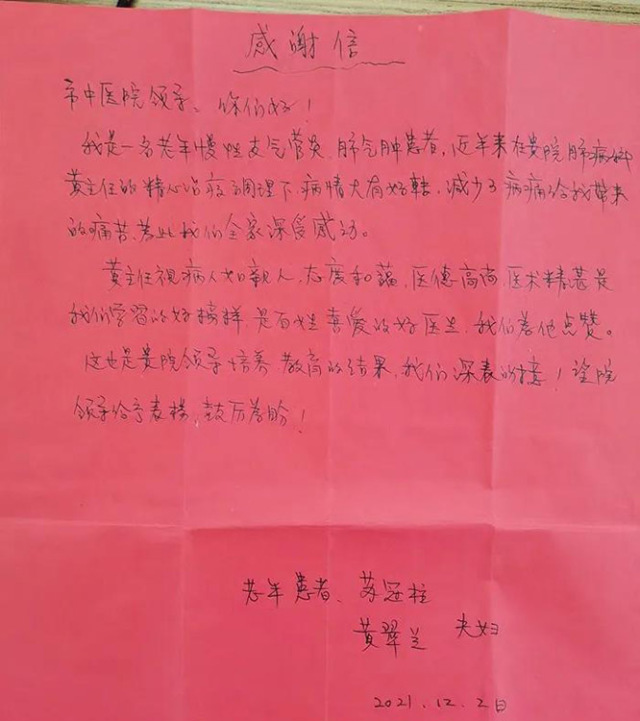 感谢信
市中医院领导、你们好！
我是一名老年慢性支气管炎、肺气肿患者，近年来在贵院肺病科
黄主任的精心治疗调理下，病情大有好转，减少了病痛给我带来
的痛苦，为此我们全家深受感动。
黄主任视病人如亲人，态度和蔼，医德高尚，医术精湛是
我们学习的好榜样，是百姓喜爱的好医生，我们为他点赞。
这也是贵院领导培养教育的结果，我们深表感！望院
领导给予表扬，鼓厉为盼！
老年患者、苏冠柱
黄翠兰 夫妇
2021.12.2日